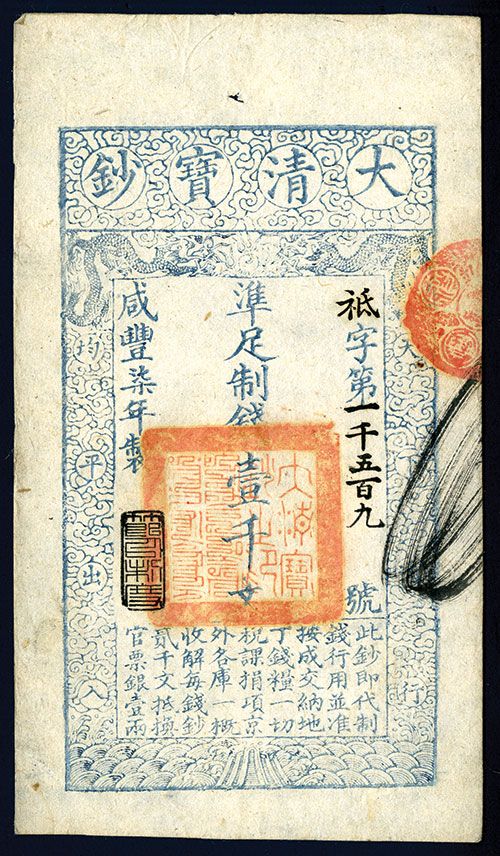 大清寶鈔
天
行
祗字第一千五百九號
準足制錢壹千文
咸豐柒年製
均平出入
此鈔即代制
錢行用並准
按成交納地
丁錢糧一切
稅課捐項京
外各庫一概
收解每錢鈔
貳千文抵換
官票銀壹兩